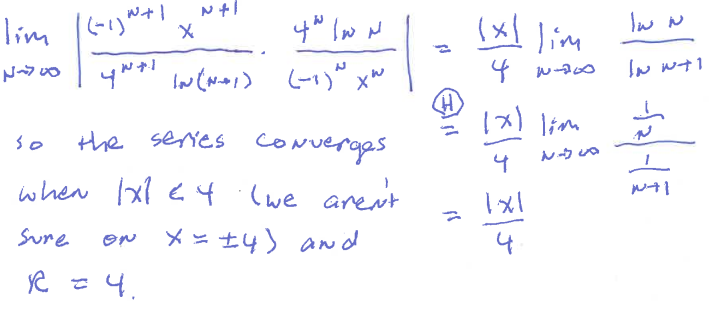 lim N→∞ | (-1)^{N+1} x^{N+1} / 4^{N+1} ln(N+1) · 4^N ln N / (-1)^N x^N | = |x|/4 lim N→∞ ln N / ln N+1
(H) = |x|/4 lim N→∞ (1/N) / (1/(N+1))
= |x|/4
so the series converges
when |x| < 4 (we aren't
sure on x = ±4) and
R = 4.